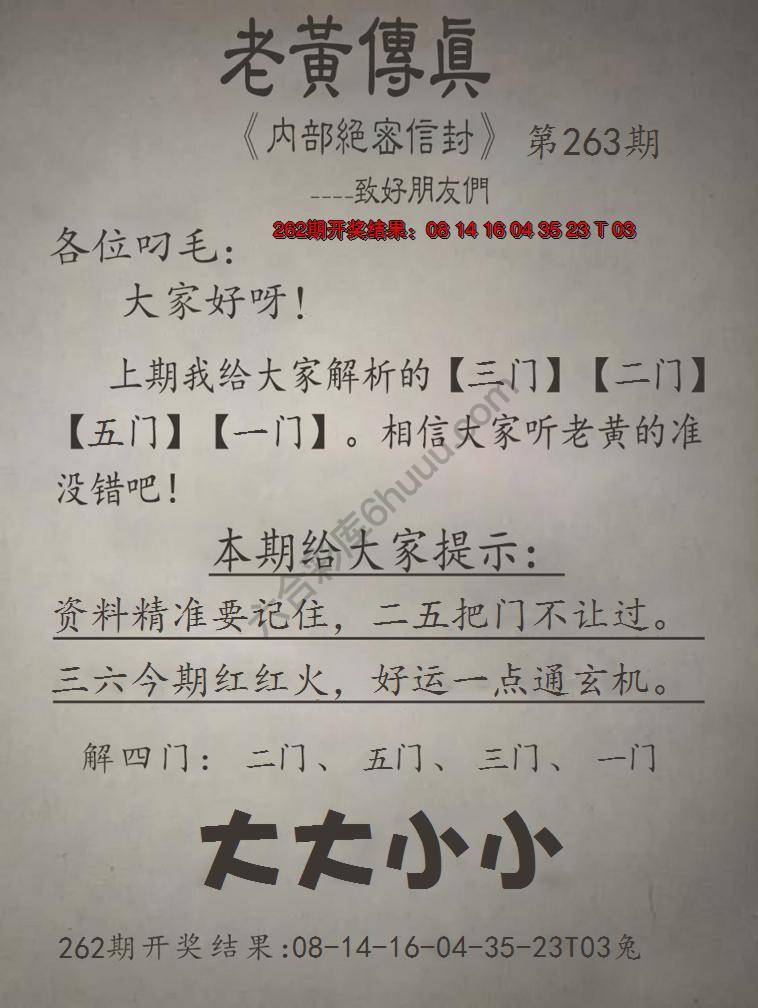 老黃傳眞
《内部絕密信封》 第263期
----致好朋友們
262期开奖结果：08 14 16 04 35 23 T 03
各位叼毛：
大家好呀！
上期我给大家解析的【三门】【二门】
【五门】【一门】。相信大家听老黄的准
没错吧！
本期给大家提示：
资料精准要记住，二五把门不让过。
三六今期红红火，好运一点通玄机。
解四门：二门、五门、三门、一门
大大小小
262期开奖结果:08-14-16-04-35-23T03兔
六合彩库6huuu.com